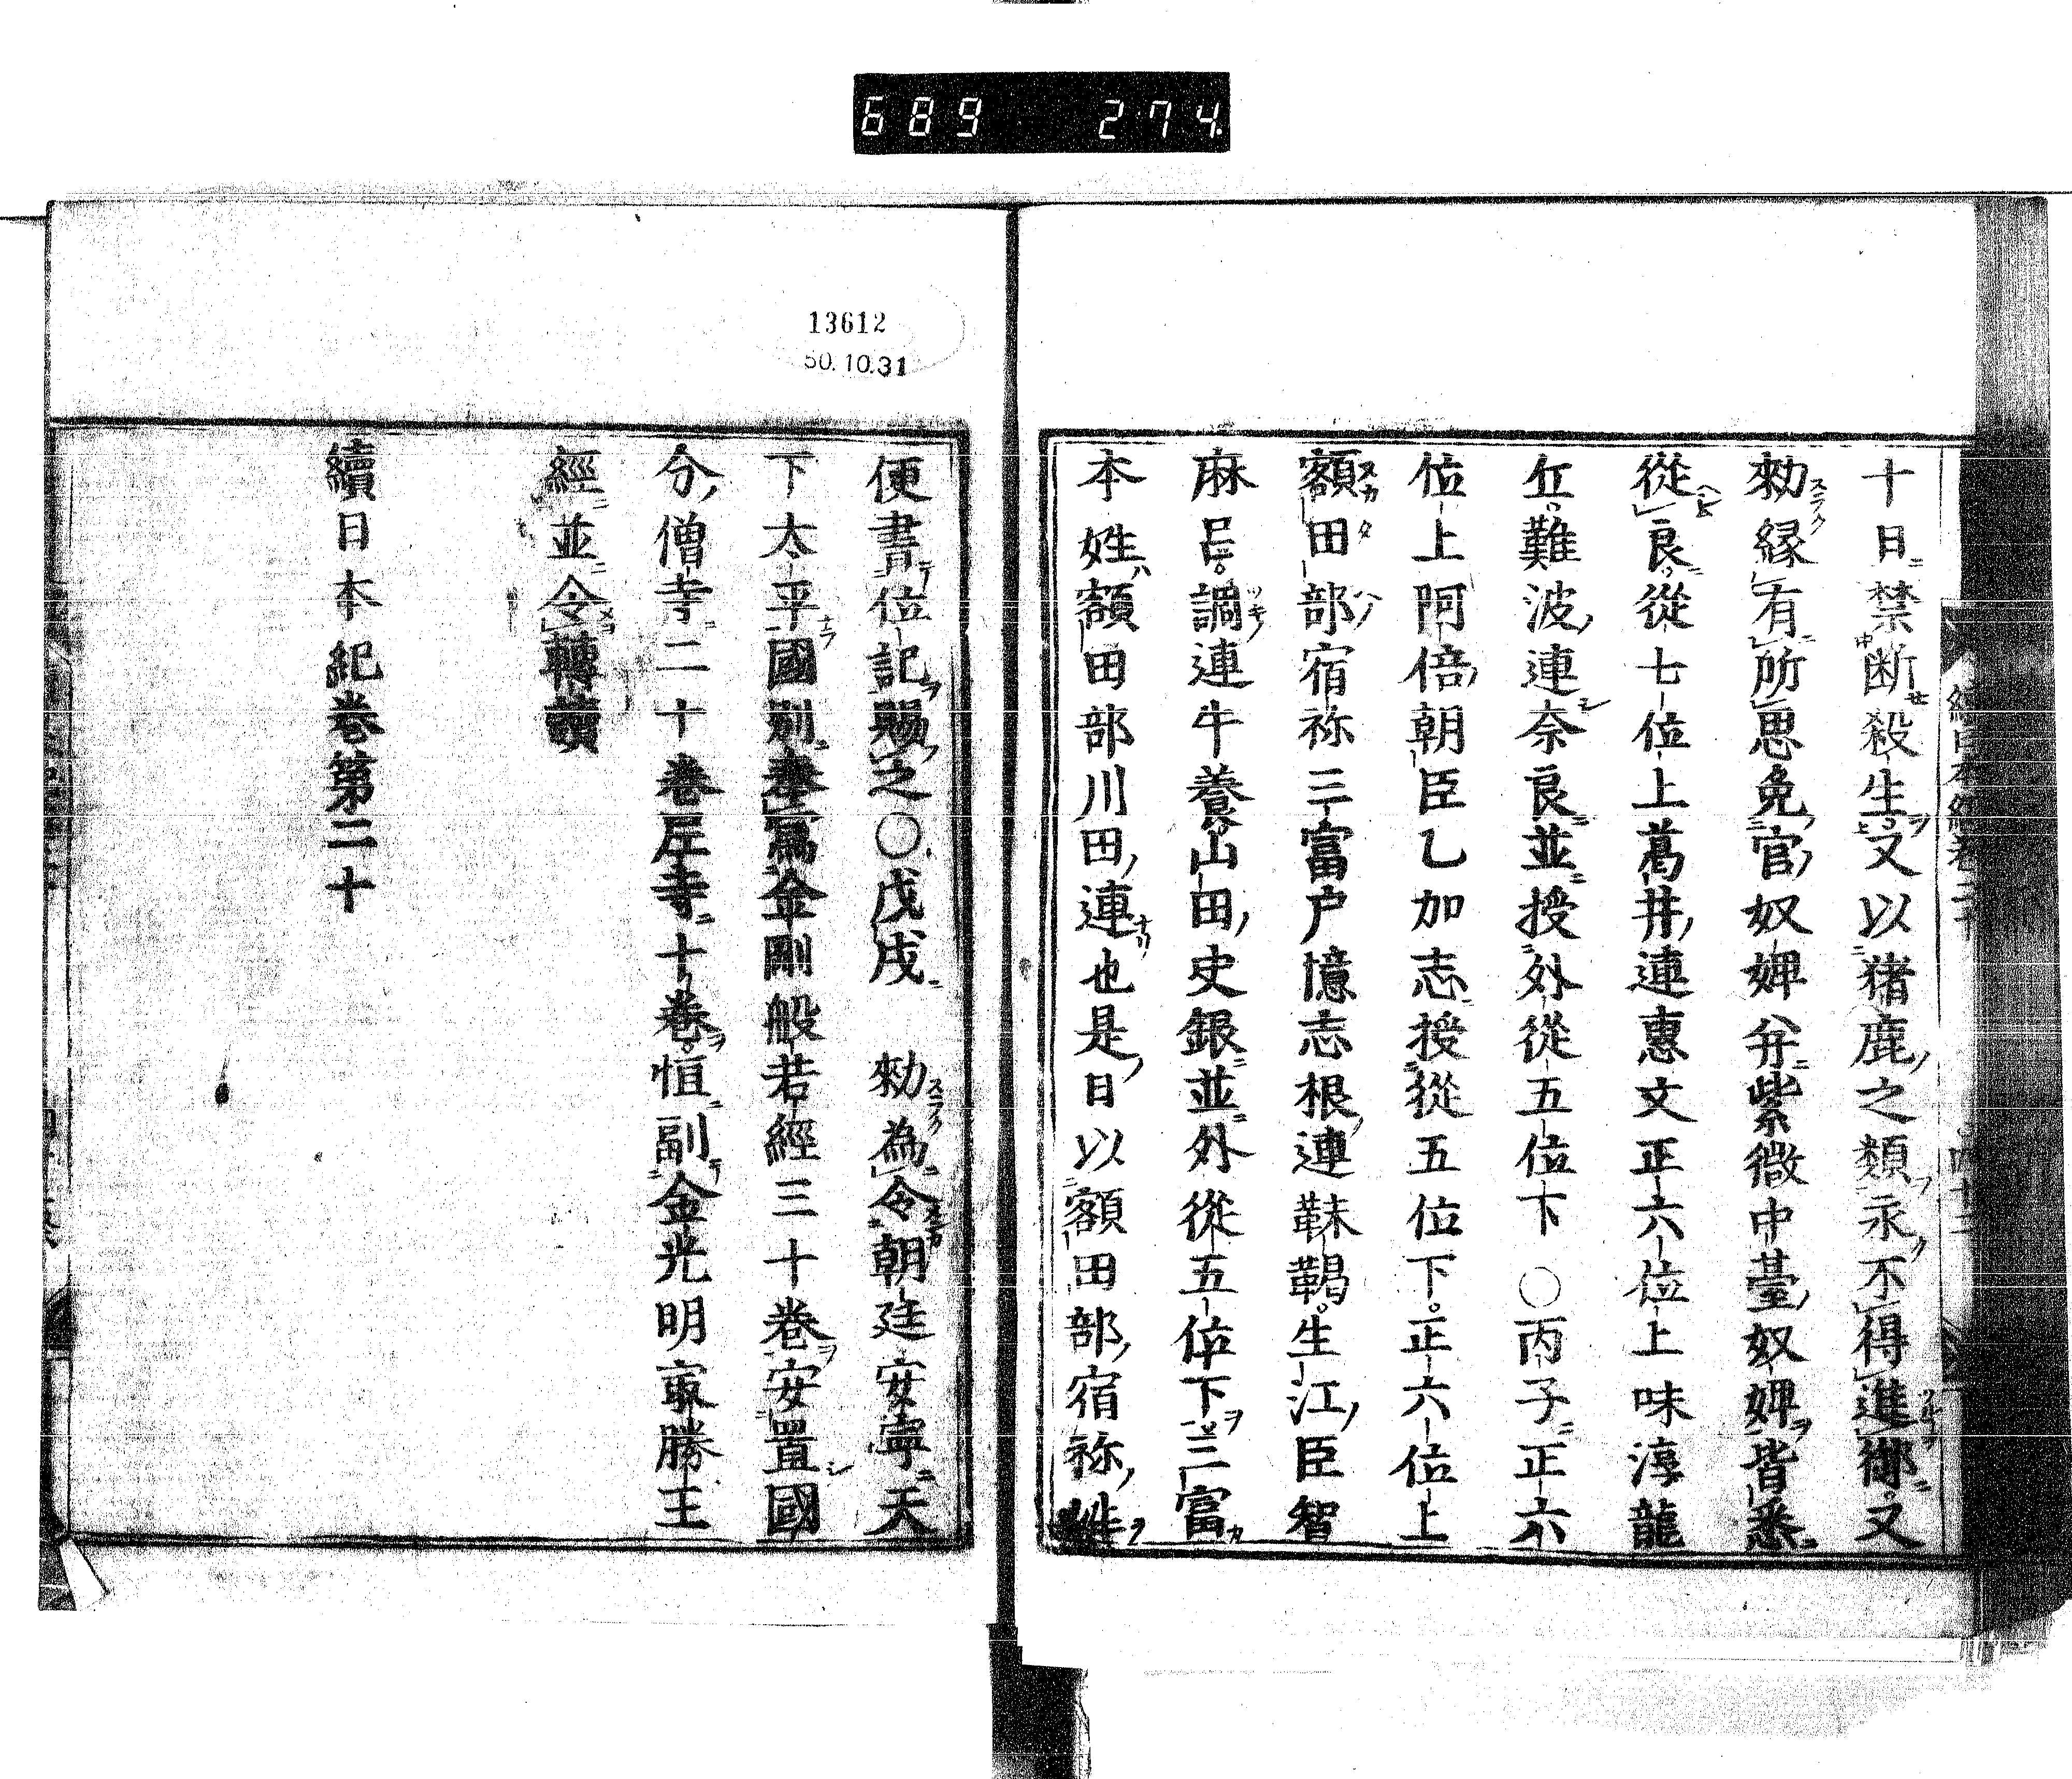 689 274
十日禁断殺生又以猪鹿之類永不得進御又
勅縁有所思免官奴婢弁紫微中䑓奴婢皆悉
從良從七位上葛井連惠文正六位上味淳龍
丘難波連奈良並授外從五位下〇丙子正六
位上阿倍朝臣乙加志授從五位下正六位上
額田部宿祢三富戸憶志根連靺鞨生江臣智
麻呂調連牛養山田史銀並外從五位下三富
本姓額田部川田連也是日以額田部宿祢姓
13612
50.10.31
便書位記賜之〇戊戌 勅為令朝廷安寧天
下太平國別書寫金剛般若經三十巻安置國
分僧寺二十巻尼寺十巻恒副金光明㝡勝王
經並令轉讀
續日本紀巻第二十